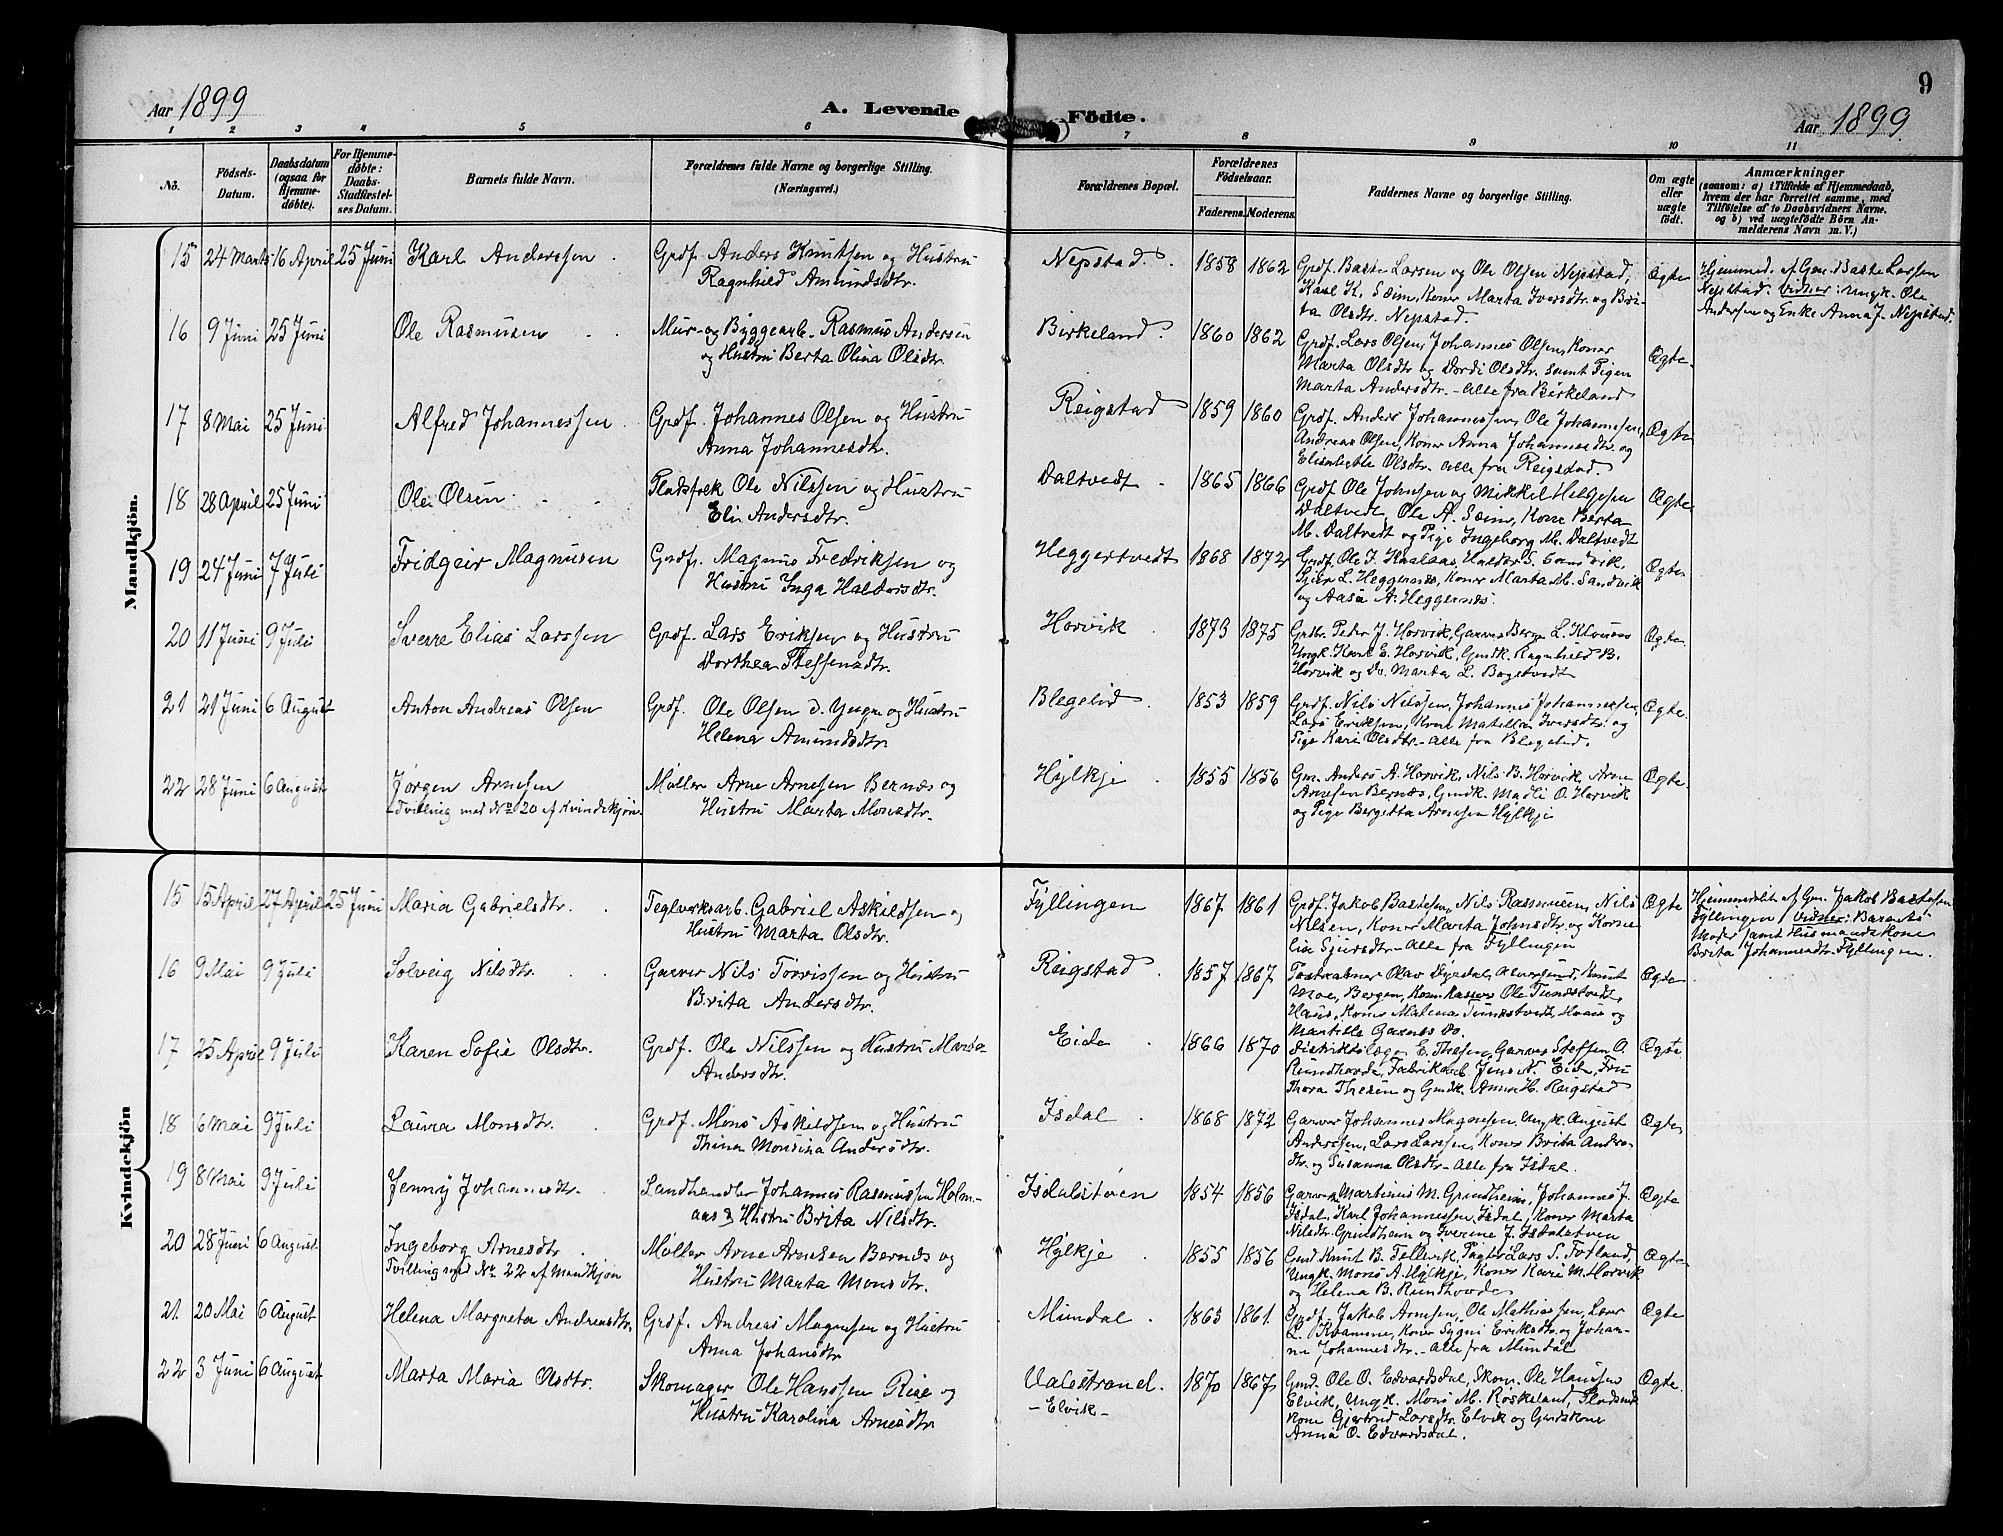 9
Aar 1899
A. Levende Födte.
Aar 1899
1 2 3 4 5 6 7 8 9 10 11
No.
Födsels-Datum.
Daabsdatum (ogsaa for Hjemme-döbte).
For Hjemme-döbte: Daabs-Stadfæstel-ses Datum.
Barnets fulde Navn.
Forældrenes fulde Navne og borgerlige Stilling.
(Næringsvei.)
Forældrenes Bopæl.
Forældrenes Födselsaar.
Faderens. Moderens.
Faddernes Navne og borgerlige Stilling.
Om ægte eller uægte födt.
Anmærkninger
(saasom: a) i Tilfælde af Hjemmedaab, hvem der har forrettet samme, med Tilföielse af to Daabsvidners Navne, og b) ved uægtefödte Börn An-melderens Navn m. V.)
Mandkjön.
15 24 Marts 16 April 25 Juni Karl Anderssen Grdf. Anders Knutsen og Hustru
Ragnhild Amundsdtr.
Nepstad. 1858 1862 Grdf. Baste Larsen og Ole Olsen Nepstad,
Karl K. Sæim, Koner Marta Iversdtr. og Bri-
ta Olsdtr. Nepstad.
Ægte
Hjemmed. af Gm. Baste Larssen
Nepstad. Vidner: Ungk. Ole
Andersen og Enke Anna J. Nepstad.
16 9 Juni 25 Juni Ole Rasmusen Mur- og Byggearb. Rasmus Andersen
og Hustru Berta Olina Olsdtr.
Birkeland 1860 1862 Grdf. Lars Olsen, Johannes Olsen, Koner
Marta Olsdtr. og Dordi Olsdtr. samt Pigen
Marta Andersdtr. - alle fra Birkeland
Ægte
17 8 Mai 25 Juni Alfred Johannessen Grdf. Johannes Olsen og Hustru
Anna Johannesdtr.
Reigstad 1859 1860 Grdf. Anders Johannessen, Ole Johannesen,
Andreas Olsen, Koner Anna Johannesdtr. og
Elisabethe Olsdtr. alle fra Reigstad.
Ægte
18 28 April 25 Juni Ole Olsen Pladsfolk Ole Nilssen og Hustru
Eli Andersdtr.
Daltvedt 1865 1866 Grdf. Ole Johnsen og Mikkel Helgesen
Daltvedt, Ole A. Sæim, Kone Berta
M. Daltvedt og Pige Ingeborg M. Daltvedt
Ægte
19 24 Juni 7 Juli Fridgeir Magnusen Grdf. Magnus Fredriksen og
Hustru Inga Haldorsdtr.
Heggertvedt 1868 1872 Grdf. Ole J. Haalaas, Haldor S. Sandvik,
L. Heggernæs, Koner Marta M. Sandvik
og Aasa A. Heggernæs.
Ægte
20 11 Juni 9 Juli Sverre Elias Larssen Grdf. Lars Eriksen og Hustru
Dorthea Steffensdtr.
Horvik 1873 1875 Grdbr. Peder J. Horvik, Garver Berge L.
Ungk. Karl E. Horvik, Gmdk. Ragnhild B.
Horvik og Do. Marta L. Bogetvedt
Ægte
21 21 Juni 6 August Anton Andreas Olsen Grdf. Ole Olsen d. Yngre og Hustru
Helena Amundsdtr.
Blegelid 1853 1859 Grdf. Nils Nilssen, Johannes Johannessen,
Lars Eriksen, Kone Matilda Iversdtr. og
Pige Kari Olsdtr. - alle fra Blegelid.
Ægte.
22 28 Juni 6 August Jørgen Arnesen
- Tvilling med Nr. 20 af Kvindekjøn.
Møller Arne Arnesen Bernæs og
Hustru Marta Monsdtr.
Hylkje 1855 1856 Gm. Anders A. Horvik, Nils B. Horvik, Arne
Arnesen Bernæs, Gmdk. Madli O. Horvik
og Pige Bergitta Arnesen Hylkje
Ægte
Kvindekjön
15 15 April 27 April 25 Juni Maria Gabrielsdtr. Teglverksarb. Gabriel Askildsen og
Hustru Marta Olsdtr.
Fyllingen 1867 1861 Grdf. Jakob Bastesen, Nils Rasmusen, Nils
Nilsen, Koner Marta Johnsdtr. og Korne-
lia Sjursdtr. - alle fra Fyllingen
Ægte
Hjemmedøbt af Gm. Jakob Bastesen
Fyllingen, Vidner: Barnets
Moder samt Husmandskone
Brita Johannesdtr. Fyllingen.
16 9 Mai 9 Juli Solveig Nilsdtr. Garver Nils Torrissen og Hustru
Brita Andersdtr.
Reigstad 1857 1867 Postaabner Olav Dyrdal, Alversund, Knut
Moe, Bergen, Kom.kasserer Ole Tunestvedt,
Haus, Kone Malena Tunestvedt, Haus og
Martille Garnes do.
Ægte
17 25 April 9 Juli Karen Sofie Olsdtr. Grdf. Ole Nilssen og Hustru Marta
Andersdtr.
Eide 1866 1870 Distriktslæge E. Thesen, Garver Steffen O.
Rundhovde, Fabrikarb Jens N. Eide, Fru
Thora Thesen og Gmdk. Anna H. Reigstad
Ægte
18 6 Mai 9 Juli Laura Monsdtr. Grdf. Mons Askildsen og Hustru
Thina Monsina Andersdtr.
Isdal 1868 1872 Garver Johannes Magnesen, Ungk. August
Anderssen, Lars Larssen, Koner Brita Anders-
dtr. og Susanna Olsdtr. - Alle fra Isdal.
Ægte
19 8 Mai 9 Juli Jenny Johannesdtr. Landhandler Johannes Rasmussen Holm-
aas & Hustru Brita Nilsdtr.
Isdalstøen 1854 1856 Garver Martinus M. Grindheim, Johannes J.
Isdal, Karl Johannessen Isdal, Koner Marta
Nilsdtr. Grindheim og Iverine J. Isdalstøen
Ægte
20 28 Juni 6 August Ingeborg Arnesdtr.
Tvilling med Nr. 22 af Mandkjøn
Møller Arne Arnesen Bernæs og
Hustru Marta Monsdtr.
Hylkje 1855 1856 Gmd Knut B. Tellevik, Pagter Lars S. Totland,
Ungk. Mons A. Hylkje, Koner Kari M. Horvik
og Helena B. Rundhovde
Ægte
21. 20 Mai 6 August Helena Margreta Andreasdtr. Grdf. Andreas Magnesen og Hustru
Anna Johansdtr
Mundal 1863 1861 Grdf. Jakob Arnesen, Ole Mathiassen, Lars
L. Kvamme, Koner Sygni Eriksdtr. og Johan-
na Johannesdtr. - Alle fra Mundal
Ægte
22 3 Juni 6 August Marta Maria Olsdtr. Skomager Ole Hanssen Rise og
Hustru Karolina Arnesdtr
Valestrand.
- Elvik -
1870 1867 Gmd. Ole O. Edvardsdal, Skom. Ole Hanssen
Elvik, Ungk. Mons M. Røskeland, Pladsmd.
kone Gjertrud Larsdtr. Elvik og Gmdskone
Anna O. Edvardsdal.
Ægte.